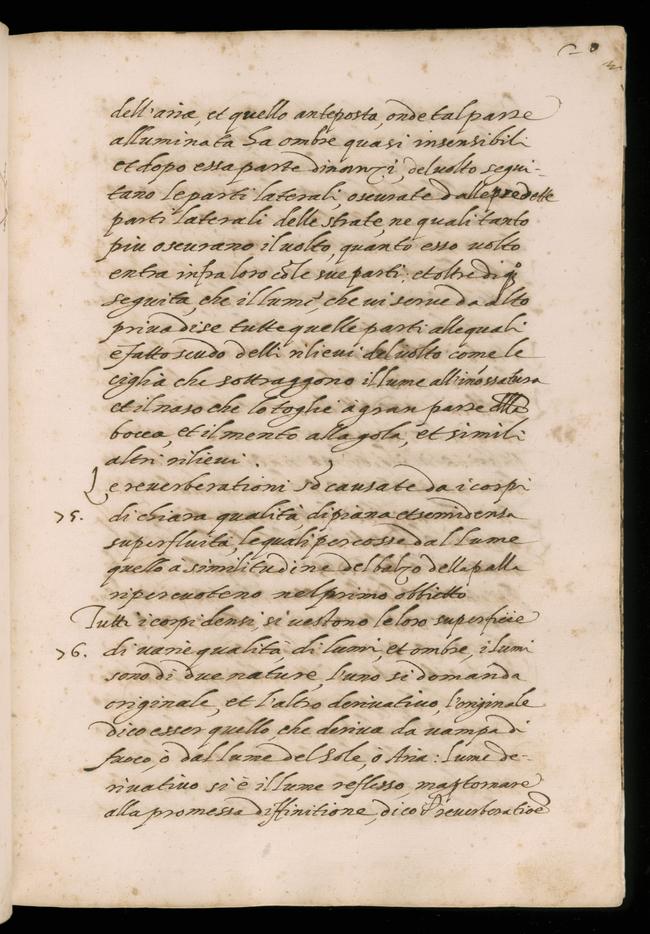 20
dell'aria, et quello anteposta, onde tal parte
alluminata ha ombre quasi insensibili
et dopo essa parte dinanzi, del volto segui-
tano le parti laterali, oscurate dalle predette
parti laterali delle strate, ne quali tanto
piu oscurano il volto, quanto esso volto
entra infra loro cõ le sue parti: et oltre di
seguita, che il lume, che vi serve da alto
priva di se tutte quelle parti alle quali
è fatto scudo delli rilievi del volto come le
ciglia che sottraggono il lume all'inossatura
et il naso che lo toglie à gran parte della
bocca, et il mento alla gola, et simili
altri rilievi.
Le reverberationi sõ causate da i corpi
75. di chiara qualità, di piana et semidensa
superfluità, le quali percosse dal lume
quello a similitudine del balzo della palla
ripercuoteno nel primo obbietto
Tutti i corpi densi, si vestono le loro superficie
76. di varie qualità, di lumi, et ombre, i lumi
sono di due nature, l'uno si domanda
originale, et l'altro derivativo, l'originale
dico esser quello, che deriva da vampa di
fuoco, ò dal lume del Sole, ò Aria: lume de-
rivativo si è il lume reflesso, ma p tornare
alla promessa diffinitione, dico reverberatiõe